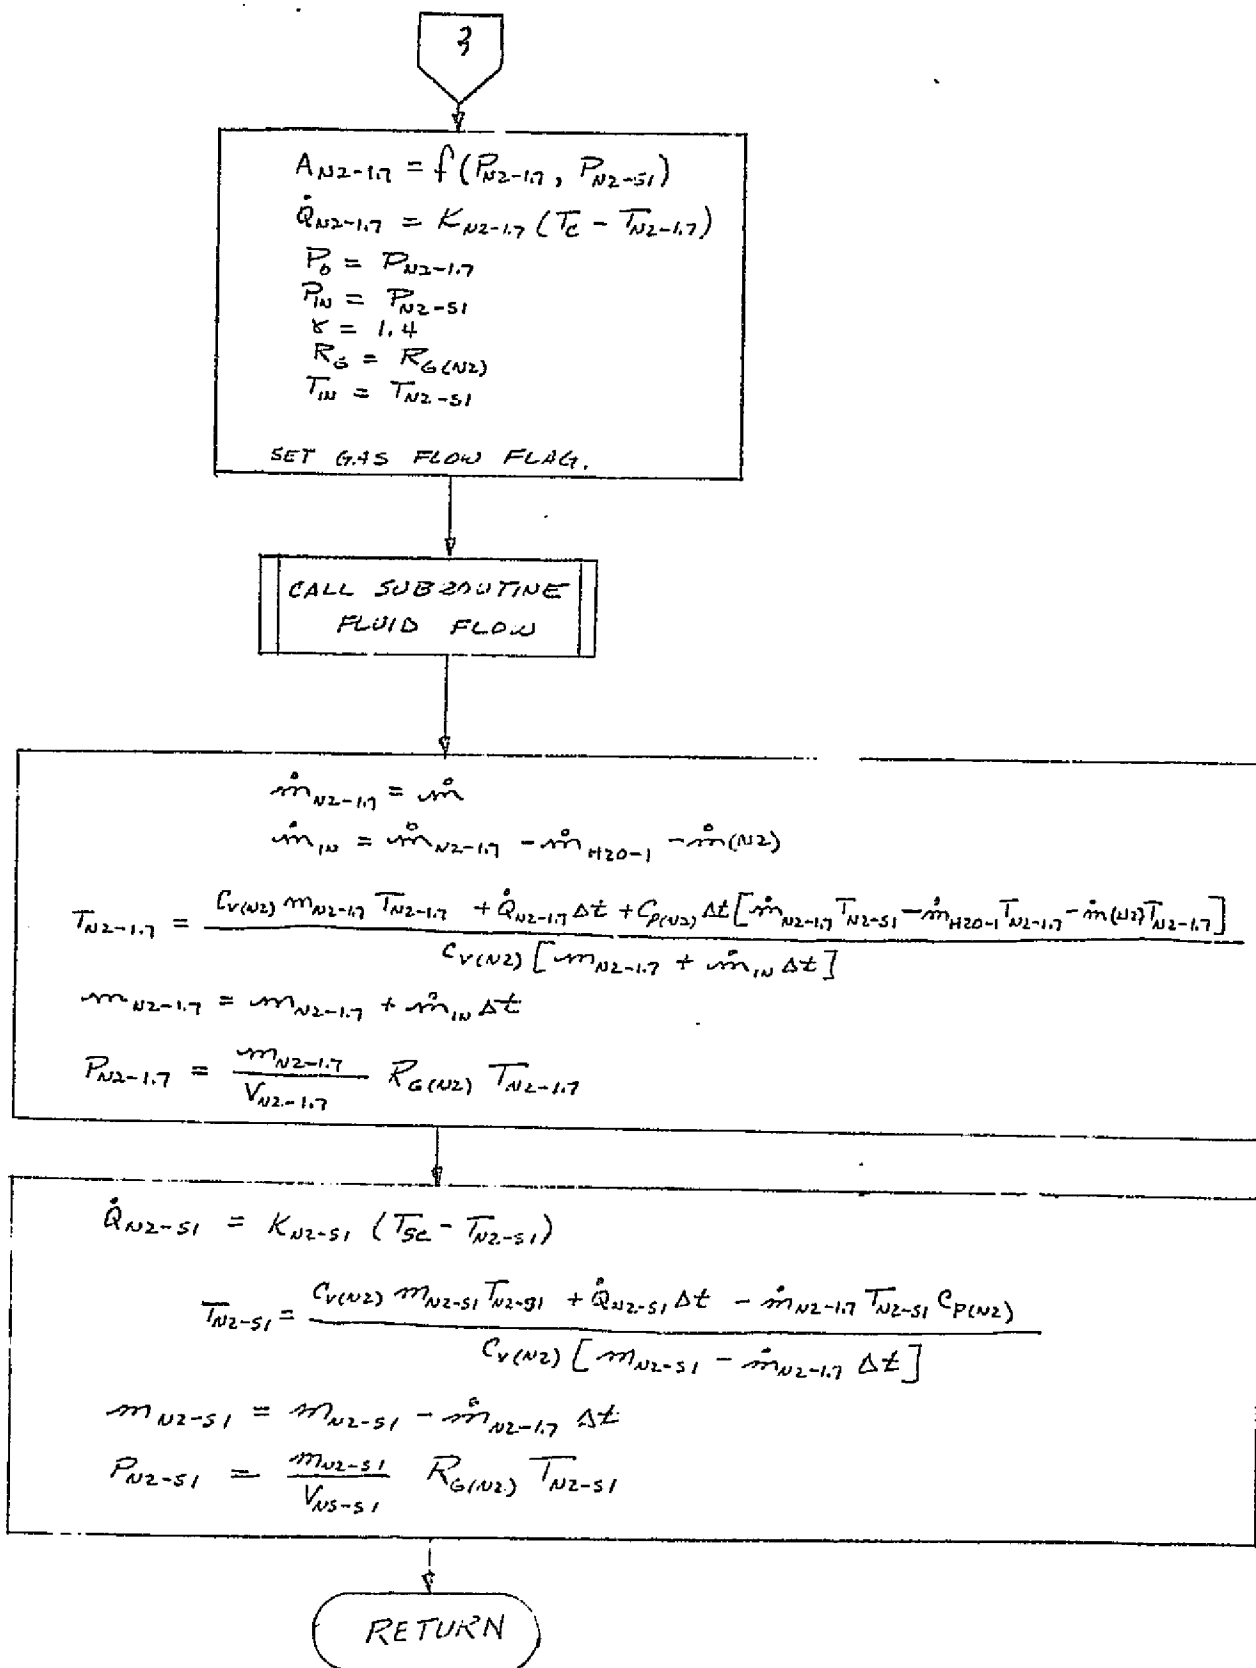 3
A_N2-1.7 = f(P_N2-1.7, P_N2-S1)
Q̇_N2-1.7 = K_N2-1.7 (T_C - T_N2-1.7)
P_O = P_N2-1.7
P_IN = P_N2-S1
γ = 1.4
R_G = R_G(N2)
T_IN = T_N2-S1
SET GAS FLOW FLAG.
CALL SUBROUTINE
FLUID FLOW
ṁ_N2-1.7 = ṁ
ṁ_IN = ṁ_N2-1.7 - ṁ_H2O-1 - ṁ(N2)
T_N2-1.7 = (C_V(N2) m_N2-1.7 T_N2-1.7 + Q̇_N2-1.7 Δt + C_P(N2) Δt [ṁ_N2-1.7 T_N2-S1 - ṁ_H2O-1 T_N2-1.7 - ṁ(N2) T_N2-1.7]) / (C_V(N2) [m_N2-1.7 + ṁ_IN Δt])
m_N2-1.7 = m_N2-1.7 + ṁ_IN Δt
P_N2-1.7 = (m_N2-1.7 / V_N2-1.7) R_G(N2) T_N2-1.7
Q̇_N2-S1 = K_N2-S1 (T_SC - T_N2-S1)
T_N2-S1 = (C_V(N2) m_N2-S1 T_N2-S1 + Q̇_N2-S1 Δt - ṁ_N2-1.7 T_N2-S1 C_P(N2)) / (C_V(N2) [m_N2-S1 - ṁ_N2-1.7 Δt])
m_N2-S1 = m_N2-S1 - ṁ_N2-1.7 Δt
P_N2-S1 = (m_N2-S1 / V_NS-S1) R_G(N2) T_N2-S1
RETURN